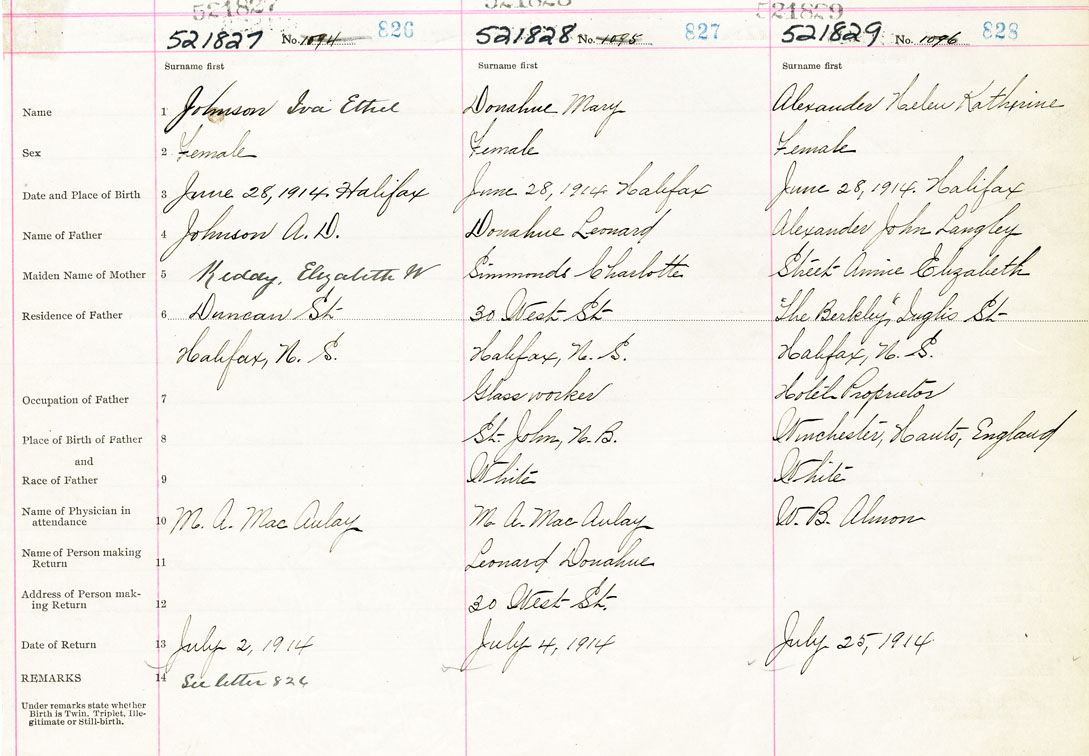 521827 521828 521829
521827 No. 1094 826 521828 No. 1095 827 521829 No. 1096 828
Surname first Surname first Surname first
Name 1 Johnson Iva Ethel Donahue Mary Alexander Helen Katherine
Sex 2 Female Female Female
Date and Place of Birth 3 June 28, 1914. Halifax June 28, 1914 Halifax June 28, 1914. Halifax
Name of Father 4 Johnson A. D. Donahue Leonard Alexander John Langley
Maiden Name of Mother 5 Keddy, Elizabeth W Simmonds Charlotte Street Annie Elizabeth
Residence of Father 6 Duncan St 30 West St "The Berkley," Inglis St
Halifax, N. S. Halifax, N. S. Halifax, N. S.
Occupation of Father 7 Glass worker Hotel Proprietor
Place of Birth of Father 8 St. John, N. B. Winchester, Hants, England
and
Race of Father 9 White White
Name of Physician in
attendance 10 M. A. Mac Aulay M. A. Mac Aulay W. B. Almon
Name of Person making
Return 11 Leonard Donahue
Address of Person mak-
ing Return 12 30 West St.
Date of Return 13 July 2, 1914 July 4, 1914 July 25, 1914
REMARKS 14 See letter 826
Under remarks state whether
Birth is Twin, Triplet, Ille-
gitimate or Still-birth.